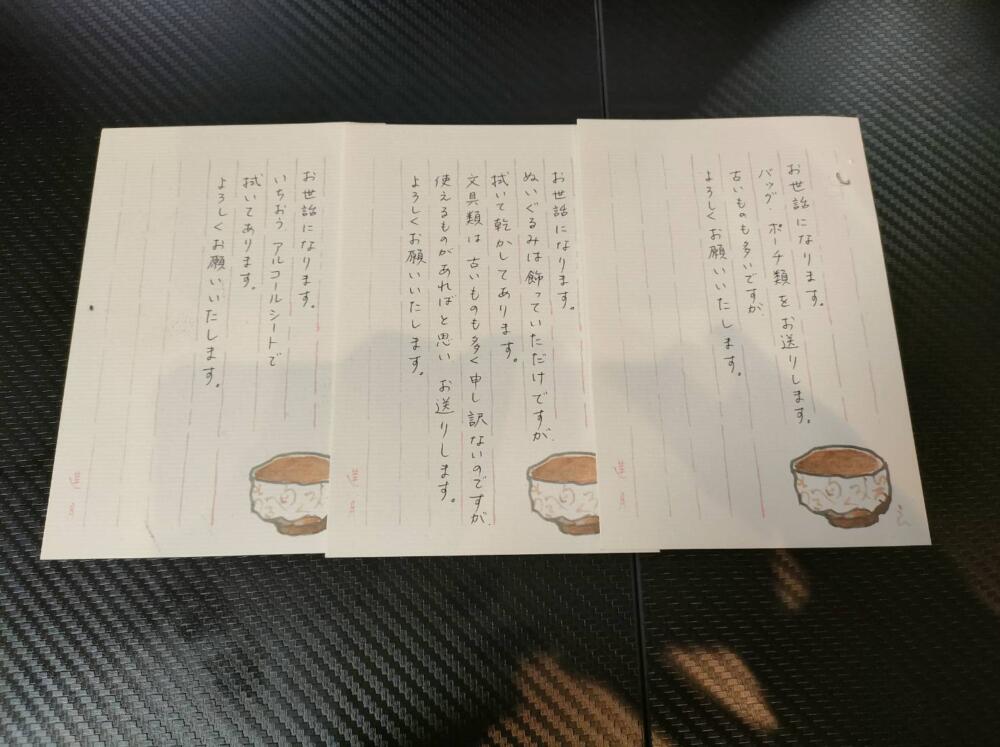 お世話になります。
バッグ ポーチ類をお送りします。
古いものも多いですが
よろしくお願いいたします。
お世話になります。
ぬいぐるみは飾っていただけですが、
拭いて乾かしてあります。
文具類は古いものも多く申し訳ないのですが、
使えるものがあればと思い お送りします。
よろしくお願いいたします。
お世話になります。
いちおう アルコールシートで
拭いてあります。
よろしくお願いいたします。